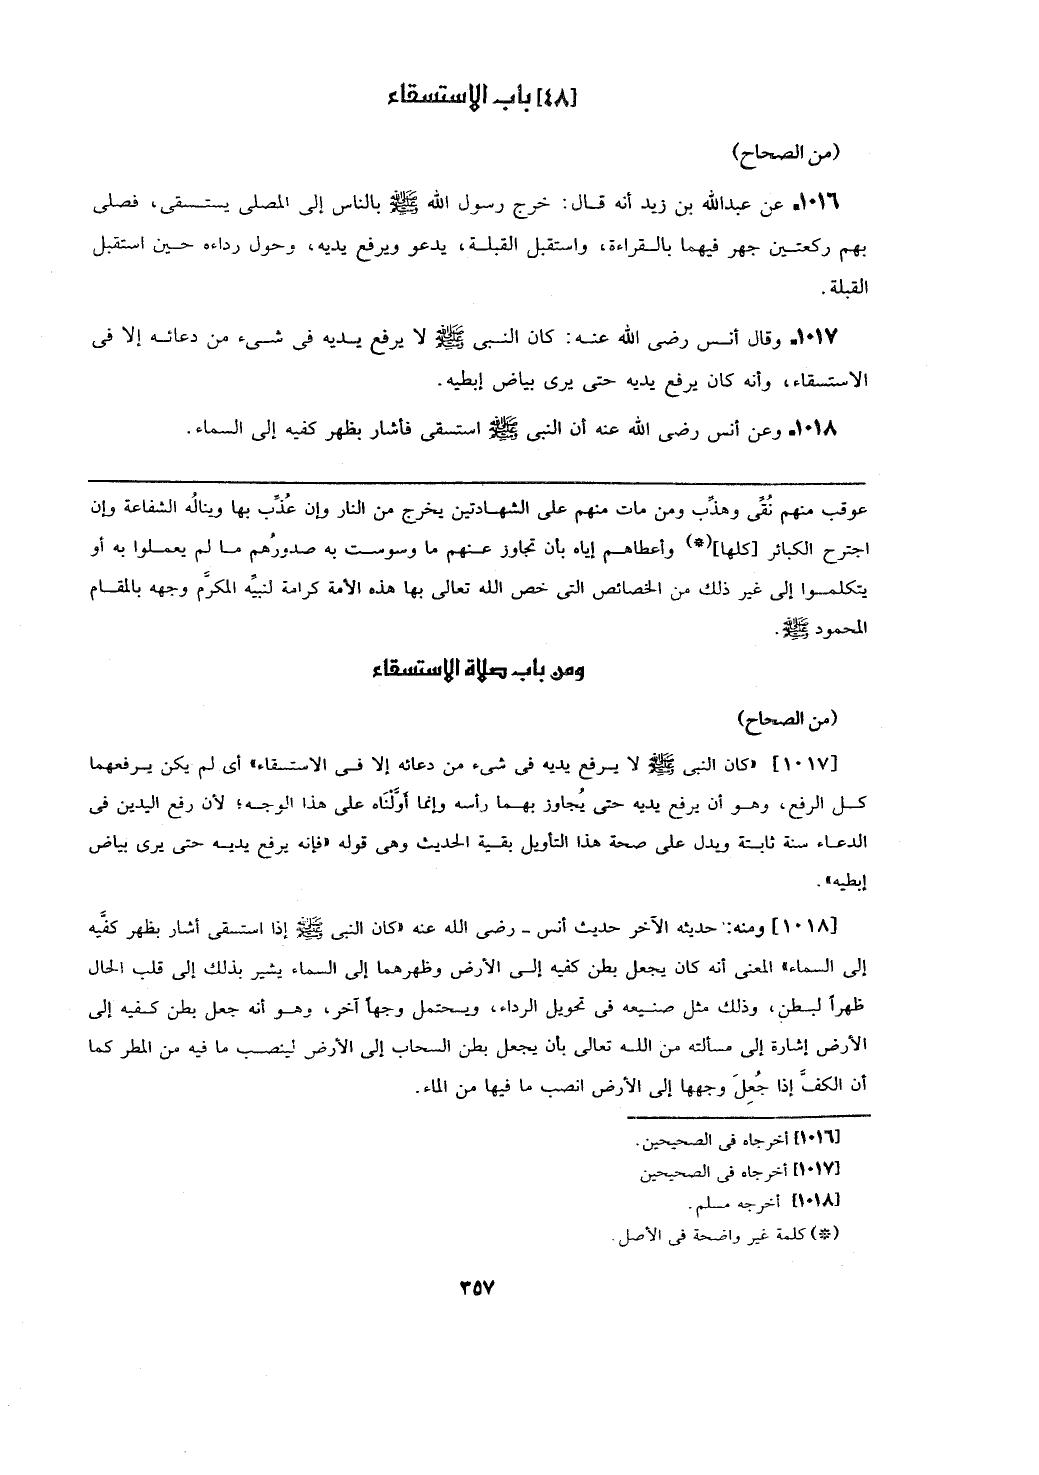 [٤٨] باب الإستسقاء
(من الصحاح)
١٠١٦ـ عن عبدالله بن زيد أنه قـال: خرج رسول الله ﷺ بالناس إلى المصلى يستـسقى، فصلى
بهم ركعتـين جهر فيهما بالـقراءة، واستقبل القبلـة، يدعو ويرفع يديه، وحول رداءه حـين استقبل
القبلة.
١٠١٧ـ وقال أنـس رضى الله عنـه: كان النـبى ﷺ لا يرفع يـديه فى شـىء من دعائـه إلا فى
الاستسقاء، وأنه كان يرفع يديه حتى يرى بياض إبطيه.
١٠١٨ـ وعن أنس رضى الله عنه أن النبى ﷺ استسقى فأشار بظهر كفيه إلى السماء.
عوقب منهم نُقًّى وهذِّب ومن مات منهم على الشهـادتين يخرج من النار وإن عُذِّب بها وينالُه الشفاعة وإن
اجترح الكبائر [كلها](*) وأعطاهـم إياه بأن تجاوز عـنهم ما وسوست به صدورُهم مـا لم يعملوا به أو
يتكلمـوا إلى غير ذلك من الخصائص التى خص الله تعالى بها هذه الأمة كرامة لنبيِّه المكرَّم وجهه بالمقـام
المحمود ﷺ.
ومن باب صلاة الإستسقاء
(من الصحاح)
[١٠١٧] «كان النبى ﷺ لا يـرفع يديه فى شىء من دعائه إلا فـى الاستسقاء» أى لم يكن يـرفعهما
كـل الرفع، وهـو أن يرفع يديه حتى يُجاوز بهـما رأسه وإنما أوَّلْنَاه على هذا الوجـه؛ لأن رفع اليدين فى
الدعـاء سنة ثابتـة ويدل على صحة هذا التأويل بقـية الحديث وهى قوله «فإنه يرفع يديـه حتى يرى بياض
إبطيه».
[١٠١٨] ومنه: حديثه الآخر حديث أنس ـ رضى الله عنه «كان النبى ﷺ إذا استسقى أشار بظهر كفَّيه
إلى السماء» المعنى أنه كان يجعل بطن كفيه إلـى الأرض وظهرهما إلى السماء يشير بذلك إلى قلب الحال
ظهراً لبـطن، وذلك مثل صنـيعه فى تحويل الرداء، ويـحتمل وجهاً آخر، وهـو أنه جعل بطن كـفيه إلى
الأرض إشارة إلى مسألته من اللـه تعالى بأن يجعل بطن السحاب إلى الأرض لينصـب ما فيه من المطر كما
أن الكفَّ إذا جُعِلَ وجهها إلى الأرض انصب ما فيها من الماء.
[١٠١٦] أخرجاه فى الصحيحين.
[١٠١٧] أخرجاه فى الصحيحين
[١٠١٨] أخرجه مسلم.
(*) كلمة غير واضحة فى الأصل.
٣٥٧